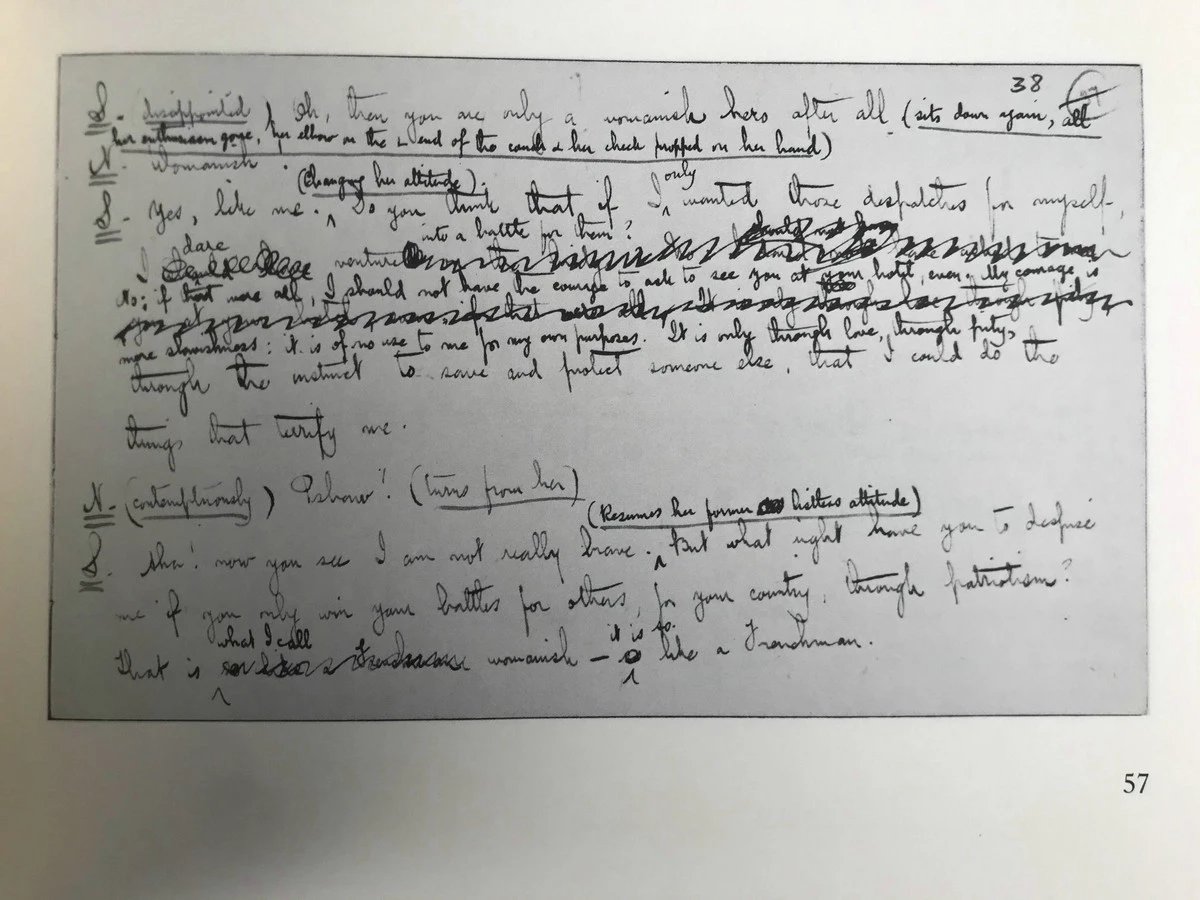 38
disappointed Oh, then you are only a womanish hero after all (sits down again, all
her enthusiasm gone, her elbow on the end of the couch & her cheek propped on her hand)
N. Womanish.
(Changing her attitude).
Yes, like me. Do you think that if I only wanted those despatches for myself,
I dare venture into a battle for them?
No; if that were all, I should not have the courage to ask to see you at your hotel, even. My courage is
more slavishness: it is of no use to me for my own purposes. It is only through love, through pity,
through the instinct to save and protect someone else, that I could do the
things that terrify me.
N. (contemptuously) Pshaw! (turns from her)
(Resumes her former listless attitude)
Aha! now you see I am not really brave. But what right have you to despise
me if you only win your battles for others, for your country, through patriotism?
That is what I call womanish – it is so like a Frenchman.
57